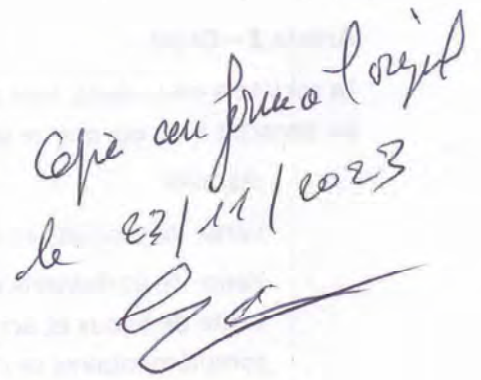 Copie conforme a l'original
le 23/11/2023